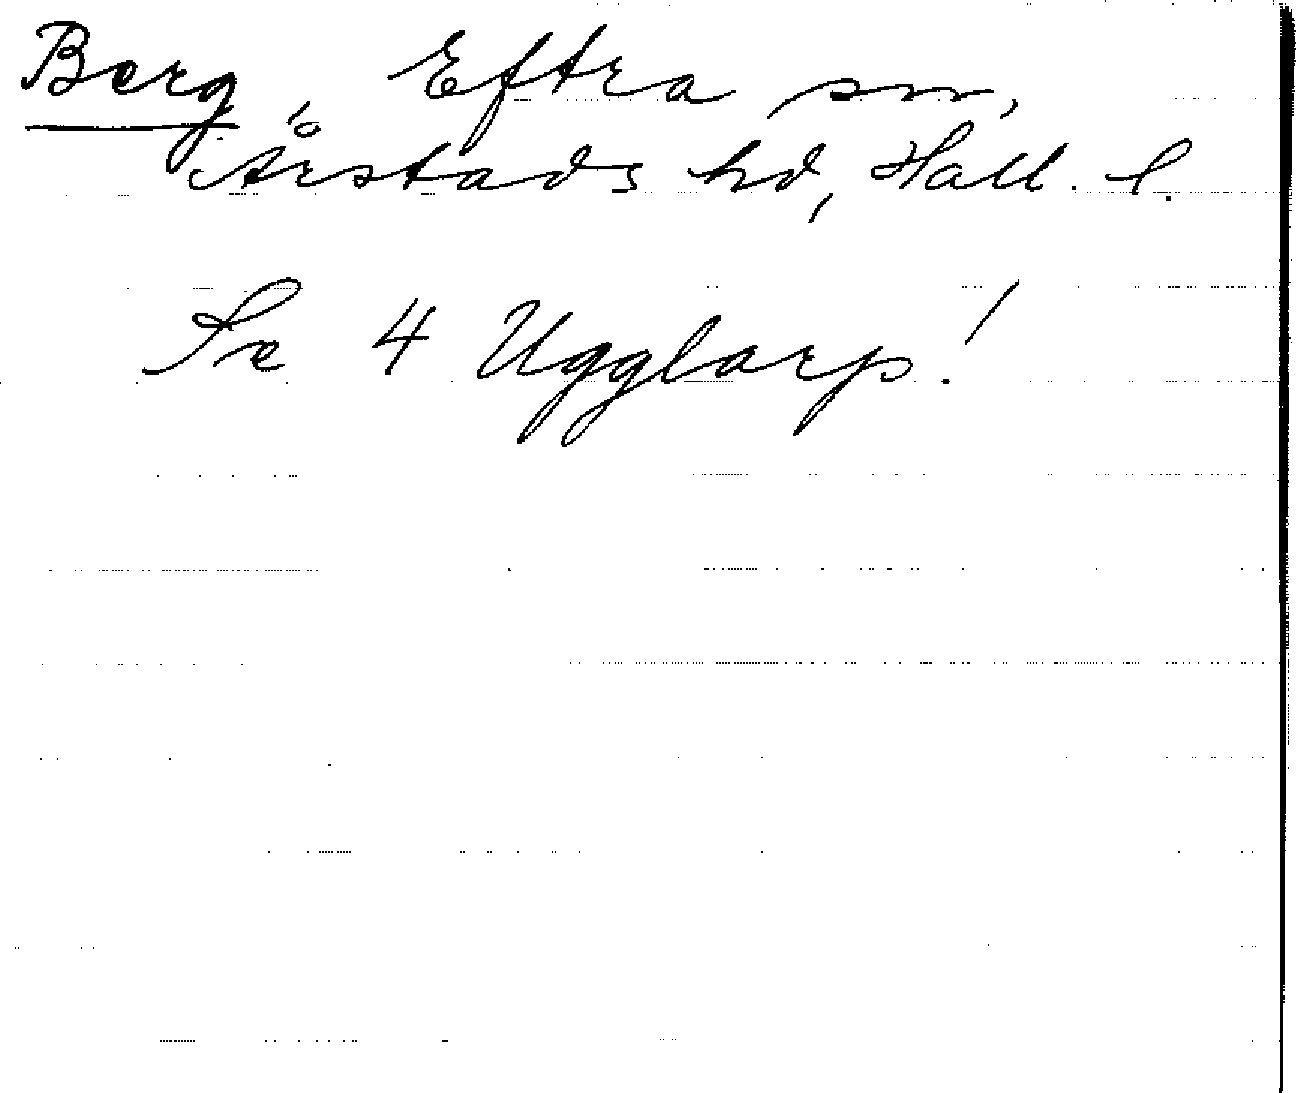 Berg, Eftra sn,
Årstads hd, Hall. l.
Se 4 Ugglarp!